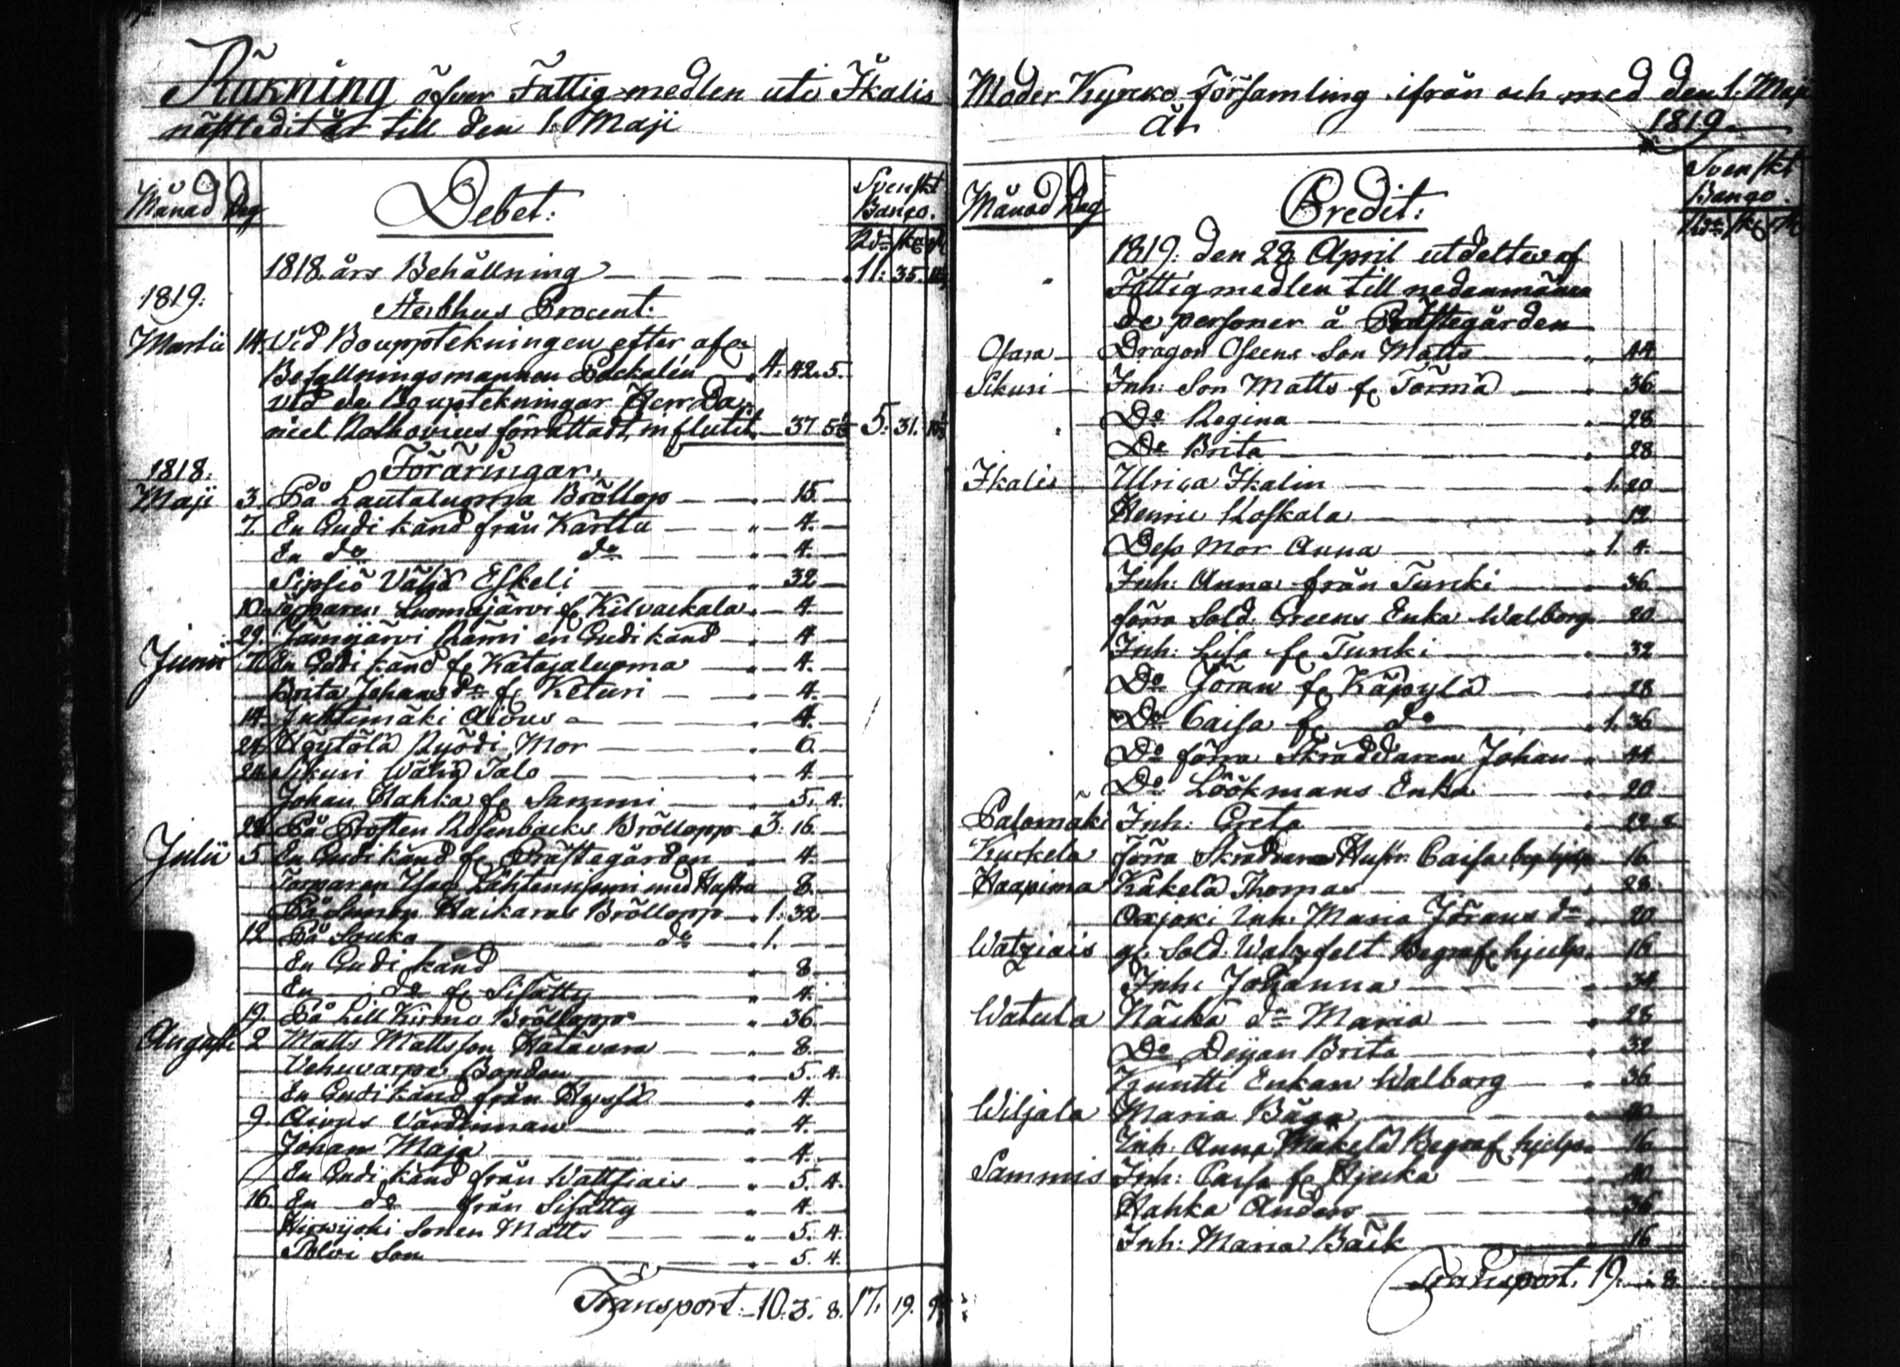 Räkning öfver Fattig-medlen uti Ikalis
näst ledit år till den 1. Maji
Månad Dag Debet: Svenskt Banco.
Rdr sk. rst
1818 års Behållning 11: 35.
1819: Sterbhus Procent:
Martii 14. Vid Bouppteckningen efter afl.
Befallningsmannen Packalén 4. 42. 5.
vid de Bouptekningar Herr Da-
niel Rolkovius förrättadt, influtit 37. 5: 31.
1818: Föräringar:
Maji 3. På Lautaluoma Bröllop 15.
7. En Gudi känd från Karttu 4.
En do do 4.
Sipsiö Vähä Eskeli 32
10. Torparen Luomajärvi fr. Kilvackala 4.
29. Jämijärvi Rämi en Gudi känd 4
Junii 7. En Gudi känd fr. Katajaluoma 4.
Brita Johans dr fr. Keturi 4.
14. Juhtimäki 4.
21. Höytölä Ryödi Mor 6.
24. Sikuri Wähä Talo 4.
Johan Hahka fr. Sammi 5. 4.
28. På Prosten Rosenbacks Bröllopp 3: 16.
Julii 5. En Gudi känd fr. Prästegården 4.
Torparen Isac Lähtenniemi med Hustru 8.
På Haikaras Bröllopp 1: 32
12. På Souka do 1.
En Gudi känd 8.
En do fr. Sisätty 4.
19. På Lill Kirmo Bröllopp 36.
Augusti 2. Matts Mattsson Hatavara 8.
Vehuvarpe Bonden 5. 4.
En Gudi känd från 4.
9. Värdinnan 4.
Johan Maja 4.
En Gudi känd från Wattsiais 5. 4.
16. En do från Sisätty 4.
Hirwijoki Sonen Matts 5. 4.
Polvi Son 5. 4.
Transport: 10: 3. 8. 17. 19.
Moder Kyrko Församling ifrån och med den 1. Maji
år 1819.
Månad Dag Credit: Svenskt Banco.
Rdr sk. rst
1819. den 28 April utdeltes af
Fattigmedlen till nedanämn
de personer å Prästegården
Osara Dragon Oseens Son Matts 44
Sikuri Inh: Son Matts fr. Törmä 36
Do Regina 28
Do Brita 28
Ikalis Ulrica Ikalin 1. 20
Henric Koskala 12
Dess Mor Anna 1. 4.
Inh: Anna från Turcki 36
förra Sold. Greens Enka Walborg 20
Inh: Lisa fr. Turcki 32
Do Jöran fr. Käpylä 28
Do Caisa fr. do 1. 36
Do förra Skräddaren Johan 44
Do Löökmans Enka 20
Palomäki Inh: Greta
Kuckela förra Skräddare Hustr. Caisa 16
Haapima Käkelä Thomas 28
Oxjoki Inh. Maria Jörans dr 20
Watziais gl. Sold. Walzfelt Begraf. hjelp 16
Inh: Johanna 34
Watula Näckä dr Maria 28
Do Deijan Brita 32
Kuntti Enkan Walborg 36
Wiljala Maria Båga
Inh. Anna Mäkelä Begraf. hjelp 16
Sammis Inh: Caisa fr. Hjucka
Hahka Anders 36
Inh: Maria Bäck 16
Transport. 19. 8.